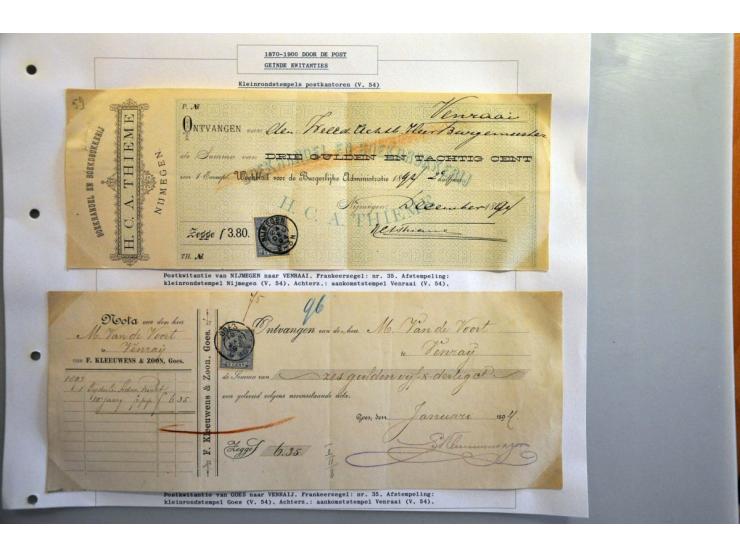 1870-1900 DOOR DE POST
GEÏNDE KWITANTIES
Kleinrondstempels postkantoren (V. 54)
59
BOEKHANDEL EN BOEKDRUKKERIJ
H. C. A. THIEME
NIJMEGEN
P. №
Venraai
ONTVANGEN van den Heer Burgemeester
de Somma van DRIE GULDEN EN TACHTIG CENT
BOEKHANDEL EN BOEKDRUKKERIJ
voor 1 Exempl. Weekblad voor de Burgerlijke Administratie 1894
H. C. A. THIEME
Nijmegen, December 1894
Zegge f 3.80.
NIJMEGEN
TH. №
Postkwitantie van NIJMEGEN naar VENRAAI. Frankeerzegel: nr. 35. Afstempeling:
kleinrondstempel Nijmegen (V. 54). Achterz.: aankomststempel Venraai (V. 54).
75
96
Nota van den heer
M. Van de Voort
Venray
van F. KLEEUWENS & ZOON, Goes.
6.35
F. Kleeuwens & Zoon, Goes.
GOES
Ontvangen van den heer M. Van de Voort
Venray
de Somma van zes gulden vijf & dertig ct
voor geleverd volgens nevenstaande nota.
Goes, den Januari 1894
Zegge f 6.35
Postkwitantie van GOES naar VENRAIJ. Frankeerzegel: nr. 35. Afstempeling:
kleinrondstempel Goes (V. 54). Achterz.: aankomststempel Venraai (V. 54).